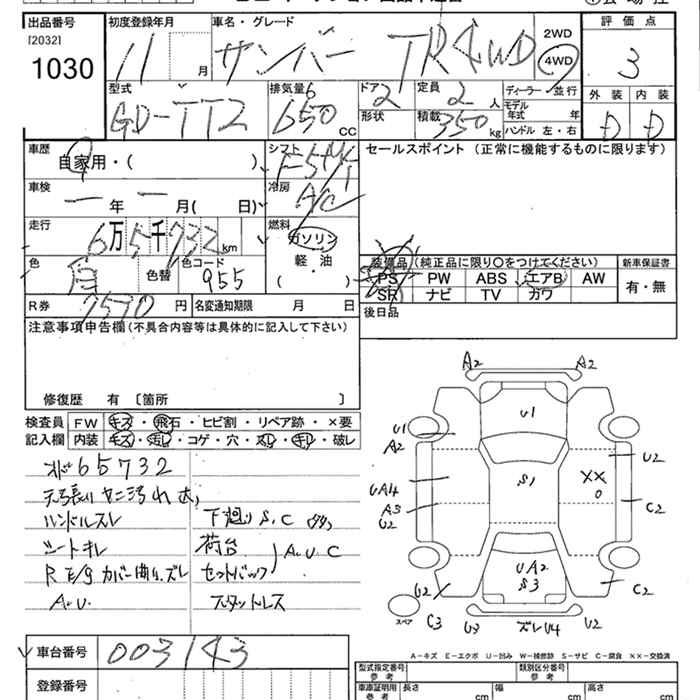 出品番号
[2032]
1030
初度登録年月
11
月
車名・グレード
サンバー TR 4WD
2WD
4WD
評価点
3
型式
GD-TT2
排気量
6
650
CC
ドア
2
定員
2
人
ディーラー・並行
形状
積載
350
kg
モデル
年式 年
ハンドル 左・右
外装 内装
D D
車歴
自家用・( )
シフト
F5
セールスポイント (正常に機能するものに限ります)
車検
年 月( 日)
冷房
AC
走行
6万5千732 km
燃料
ガソリン
軽・油
( )
色
白
色替
色コード
955
装備品 (純正品に限り〇をつけてください)
新車保証書
PS PW ABS エアB AW
SR ナビ TV カワ
有・無
R券
7530 円
名変通知期限 月 日
後日品
注意事項申告欄 (不具合内容等は具体的に記入して下さい)
修復歴 有 〔箇所 〕
検査員
記入欄
FW キズ・飛石・ヒビ割・リペア跡・×要
内装 キズ・汚レ・コゲ・穴・スレ・キレ・破レ
65732
ハンドルスレ
下廻り S.C
シートキレ
荷台
A.U.C
R E/g カバー曲り.ズレ
セットバック
A.U.
スタットレス
A2 A2
U1
U1
A2
U2
S1
XX
UA4
A3
U2
C2
UA2
S3
U2
C2
スペア
C3 U3 ズレU4 U2
A-キズ E-エクボ U-凹み W-補修跡 S-サビ C-腐食 XX-交換済
車台番号
003143
登録番号
型式指定番号
参考
類別区分番号
参考
車庫証明用
参考
長さ cm
幅 cm
高さ cm